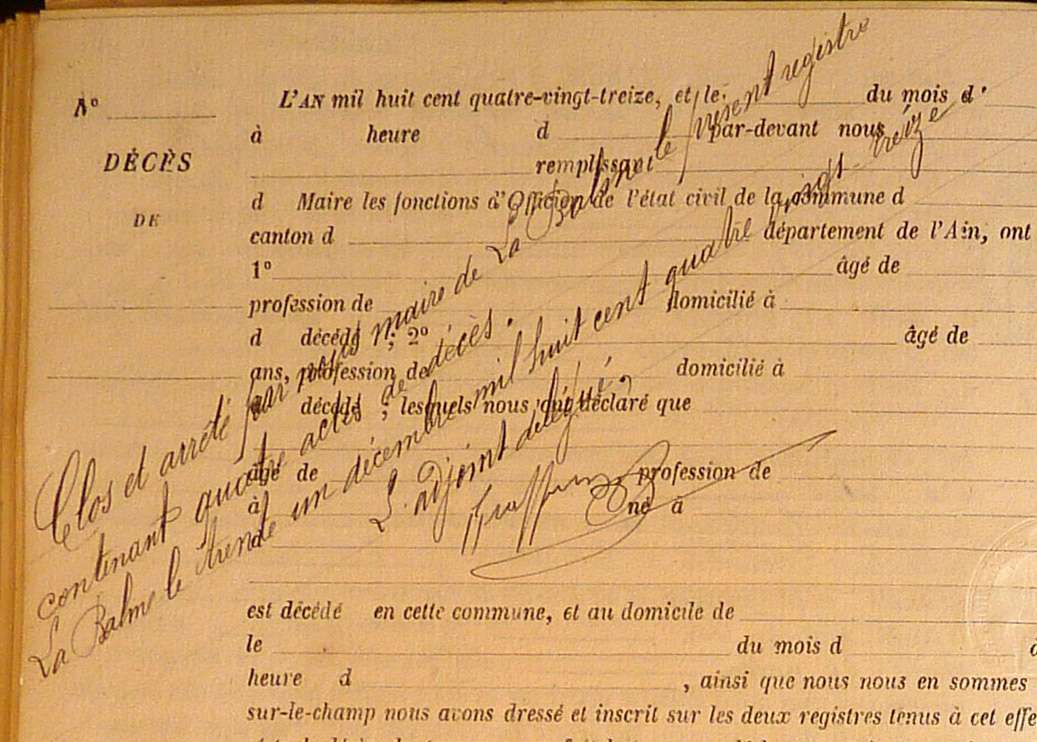 N°
DÉCÈS
DE
L'AN mil huit cent quatre-vingt-treize, et le du mois d
à heure d par-devant nous
remplissant
d Maire les fonctions d'Officier de l'état civil de la commune d
canton d département de l'Ain, ont
1° âgé de
profession de domicilié à
d décédé ; 2° âgé de
ans, profession de domicilié à
d décédé ; lesquels nous ont déclaré que
âgé de profession de
à né à
d
est décédé en cette commune, et au domicile de
le du mois d
heure d , ainsi que nous nous en sommes
sur-le-champ nous avons dressé et inscrit sur les deux registres tenus à cet effe
Clos et arrêté par nous maire de La Balme le présent registre
contenant quatre actes de décès.
La Balme le trente un décembre mil huit cent quatre vingt treize
L'adjoint délégué,